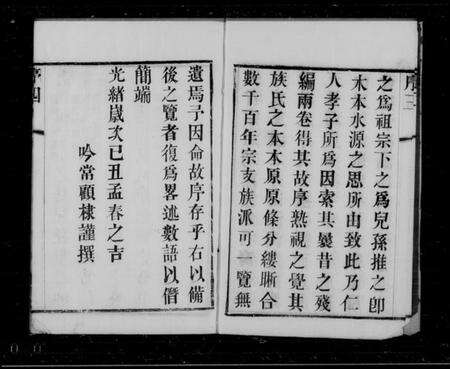 序三
之爲祖宗下之爲兒孫推之卽
木本水源之思所由致此乃仁
人孝子所爲因索其曩昔之殘
編兩卷得其故序熟視之覺其
族氏之本本原原條分縷晰合
數千百年宗支族派可一覽無
遺焉予因侖故序存乎右以備
後之覽者復爲畧述數語以僭
簡端
光緒歲次己丑孟春之吉
吟常顧棣謹撰
序四